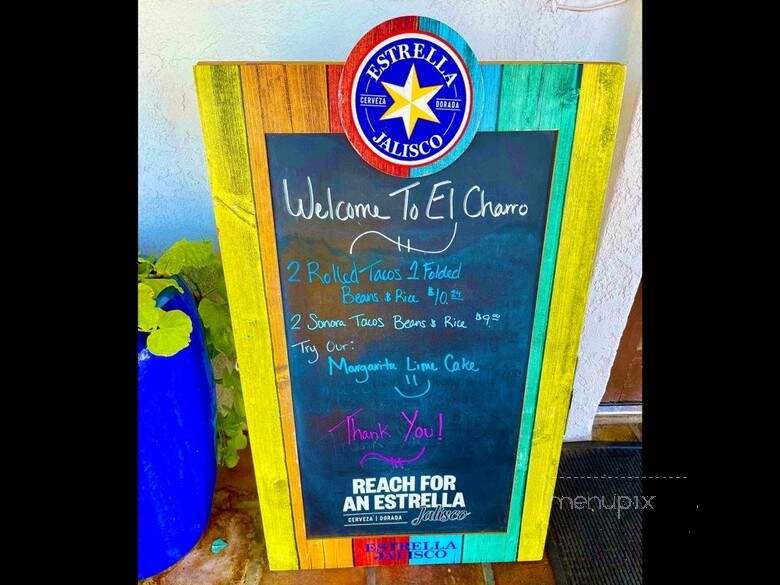 ESTRELLA
CERVEZA DORADA
JALISCO
Welcome To El Charro
2 Rolled Tacos 1 Folded
Beans & Rice $10.
2 Sonora Tacos Beans & Rice $9.
Try Our:
Margarita Lime Cake
Thank You!
REACH FOR
AN ESTRELLA
CERVEZA | DORADA Jalisco
ESTRELLA
JALISCO
menupix